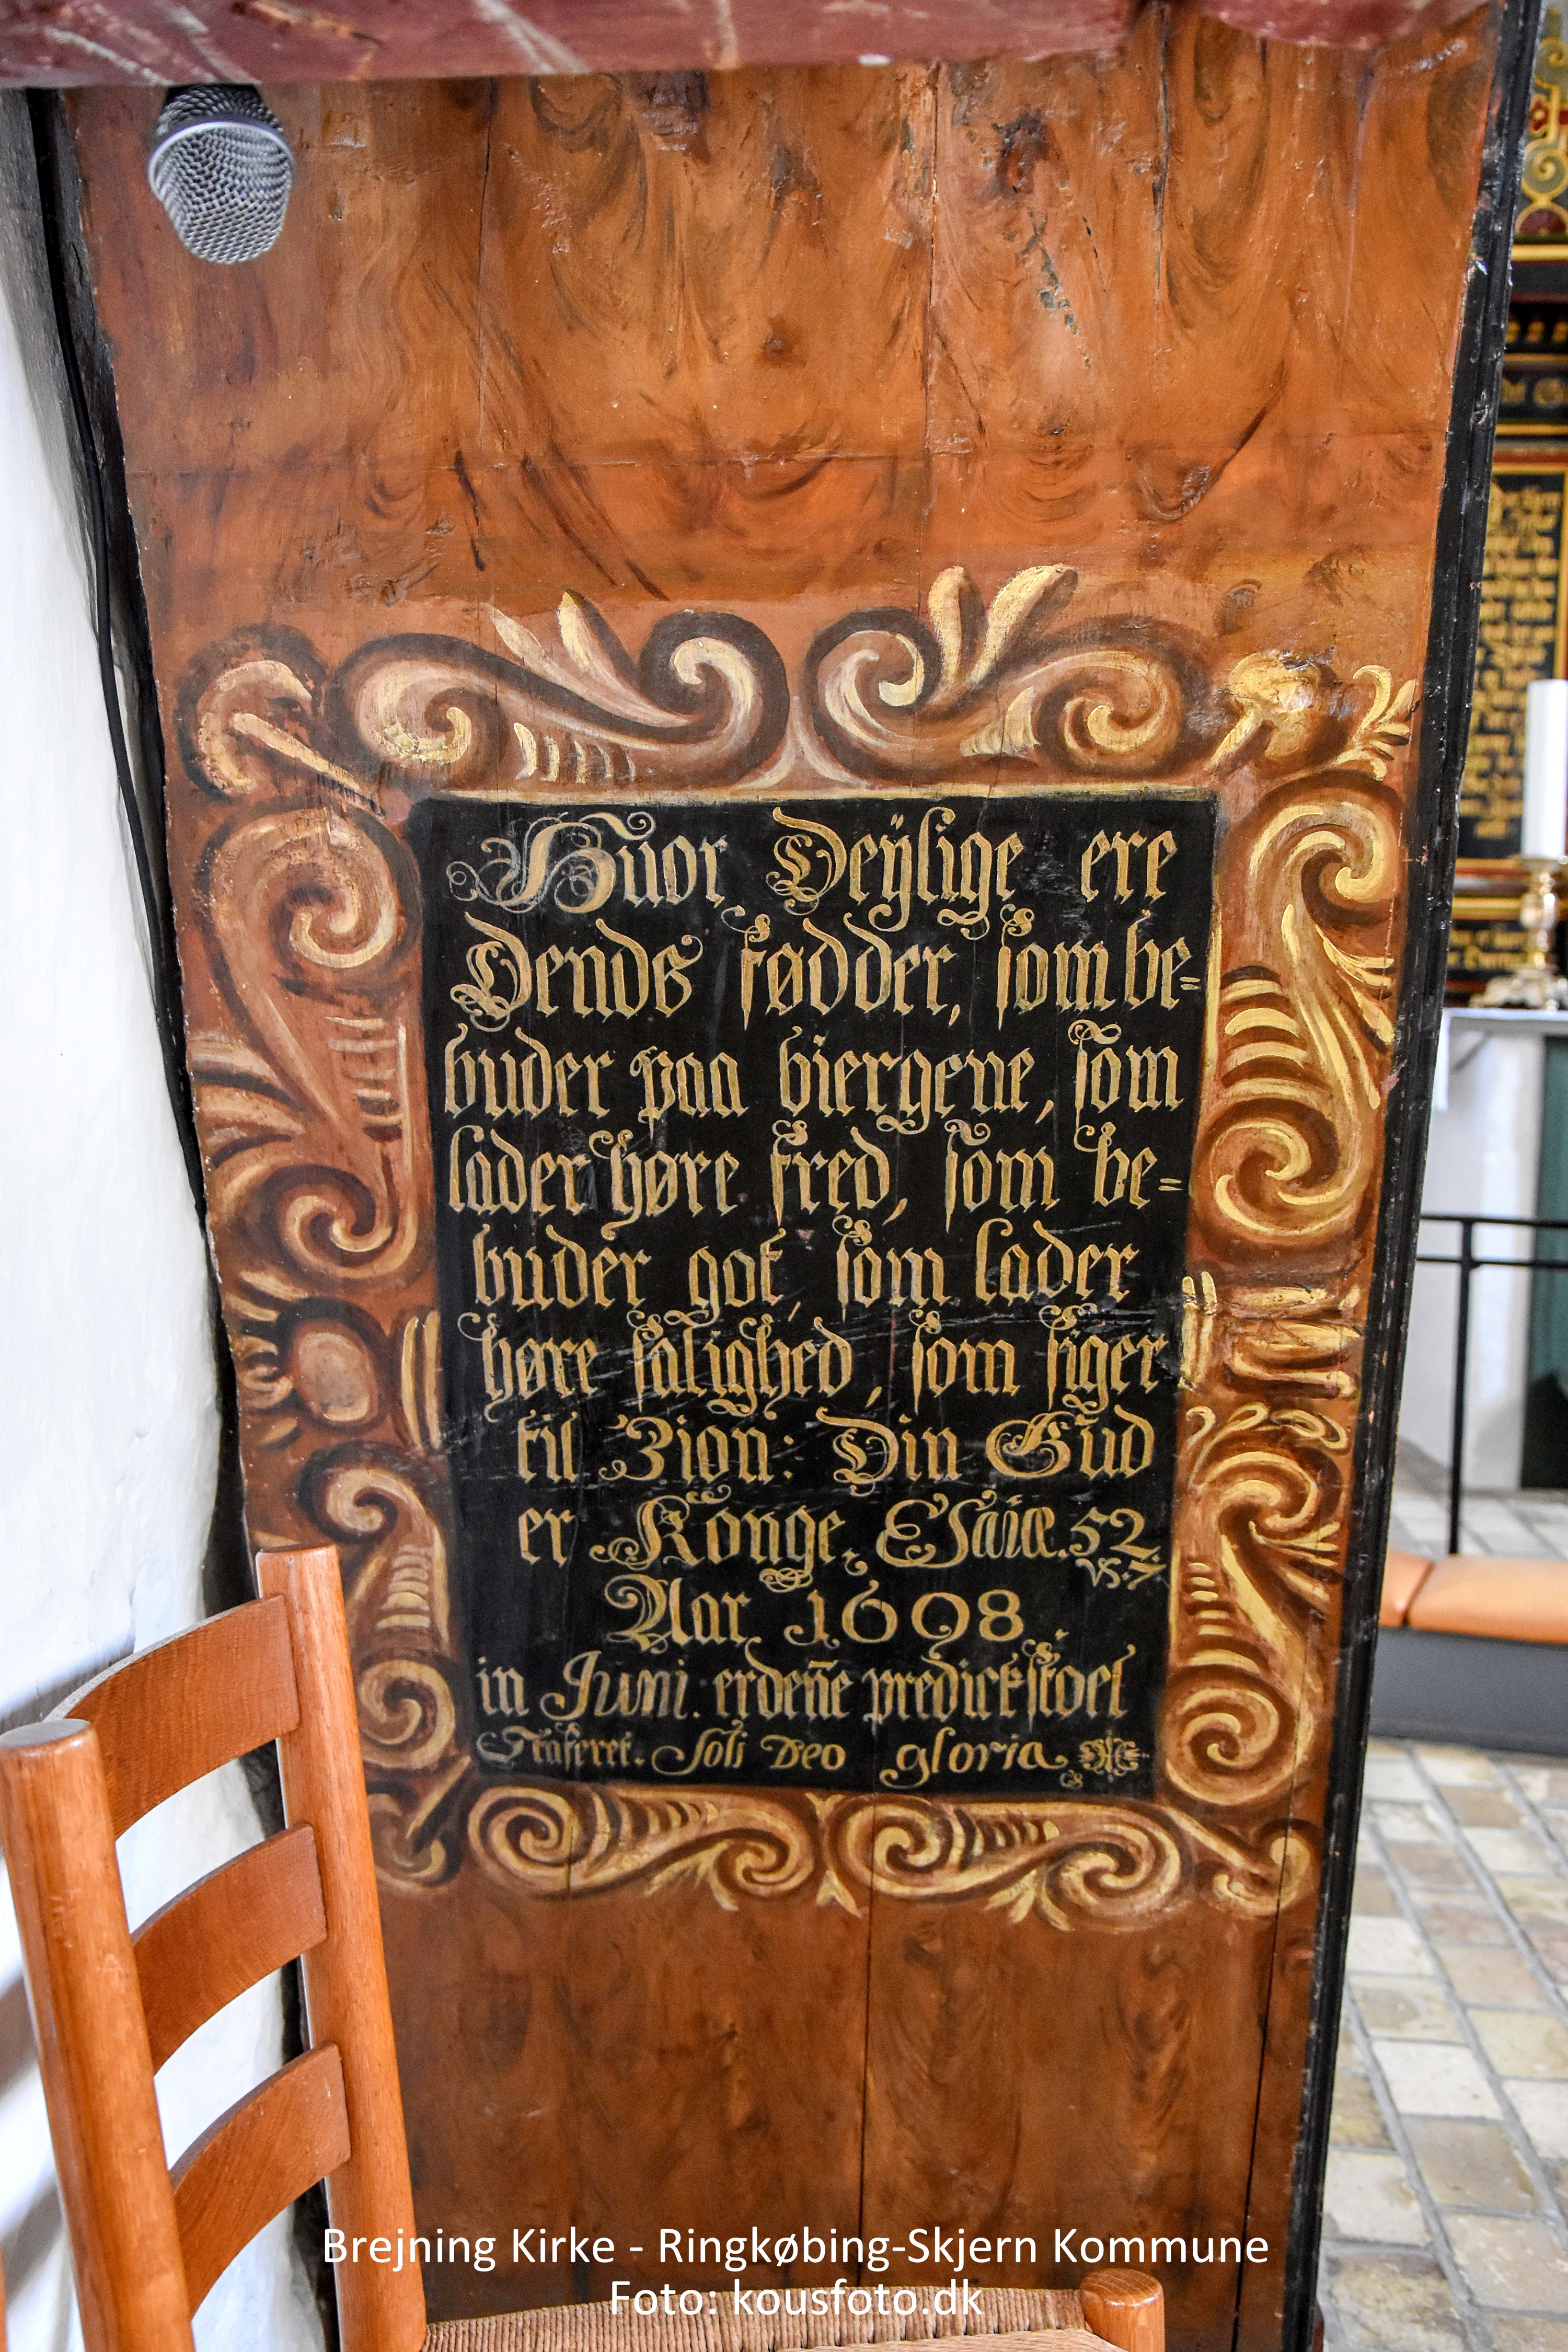 Huor Deÿlige ere
Dends fødder, som be=
buder paa biergene, som
lader høre fred, som be=
buder got, som lader
høre salighed, som siger
til Zion: Din Gud
er Konge, Esaiæ. 52
vs. 7.
Aar 1698
in Juni. er deñe predickstoel
Staferet. Soli Deo gloria
Brejning Kirke - Ringkøbing-Skjern Kommune
Foto: kousfoto.dk